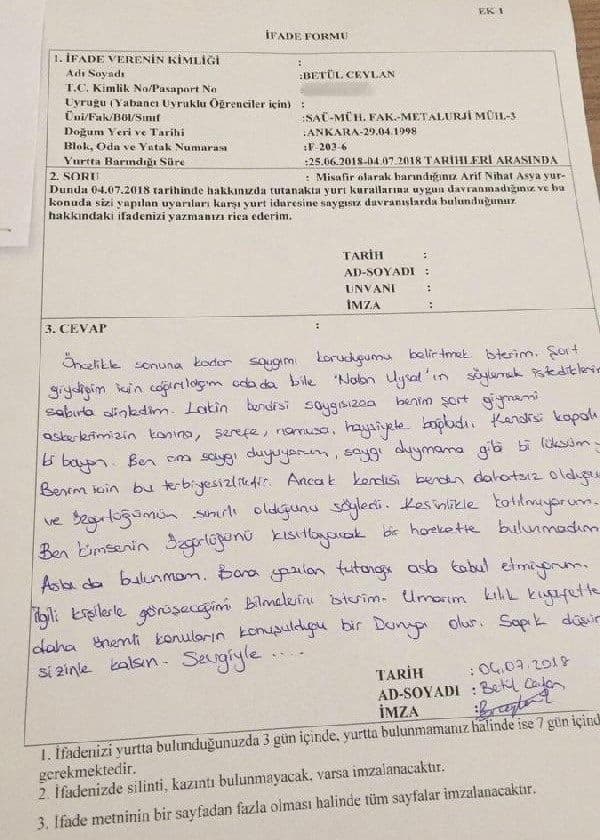 EK 1
İFADE FORMU
1. İFADE VERENİN KİMLİĞİ :
Adı Soyadı :BETÜL CEYLAN
T.C. Kimlik No/Pasaport No
Uyruğu (Yabancı Uyruklu Öğrenciler için) :
Üni/Fak/Böl/Sınıf :SAÜ-MÜH. FAK.-METALURJİ MÜH.-3
Doğum Yeri ve Tarihi :ANKARA-29.04.1998
Blok, Oda ve Yatak Numarası :F-203-6
Yurtta Barındığı Süre :25.06.2018-04.07.2018 TARİHLERİ ARASINDA
2. SORU : Misafir olarak barındığınız Arif Nihat Asya yur-
Dunda 04.07.2018 tarihinde hakkınızda tutanakta yurt kurallarına uygun davranmadığınız ve bu
konuda sizi yapılan uyarıları karşı yurt idaresine saygısız davranışlarda bulunduğunuz
hakkındaki ifadenizi yazmanızı rica ederim.
TARİH :
AD-SOYADI :
UNVANI :
İMZA :
3. CEVAP :
Öncelikle sonuna kadar saygımı koruduğumu belirtmek isterim. Şort
giydiğim için çağırıldığım odada bile 'Nalan Uysal'ın söylemek istediklerin
sabırla dinledim. Lakin kendisi saygısızca benim şort giymemi
askerlerimizin kanına, şerefe, namusa, haysiyete bağladı. Kendisi kapalı
bi bayan. Ben ona saygı duyuyorum, saygı duymama gibi bi lüksüm
Benim için bu terbiyesizliktir. Ancak kendisi benden rahatsız olduğu
ve özgürlüğümün sınırlı olduğunu söyledi. Kesinlikle katılmıyorum.
Ben kimsenin özgürlüğünü kısıtlayacak bir harekette bulunmadım
Asla da bulunmam. Bana yazılan tutanağı asla kabul etmiyorum.
İlgili kişilerle görüşeceğimi bilmelerini isterim. Umarım kılık kıyafette
daha önemli konuların konuşulduğu bir Dünya olur. Sapık düşün
sizinle kalsın. Sevgiyle ....
TARİH : 04.07.2018
AD-SOYADI : Betül Ceylan
İMZA :
1. İfadenizi yurtta bulunduğunuzda 3 gün içinde, yurtta bulunmamanız halinde ise 7 gün içind
gerekmektedir.
2. İfadenizde silinti, kazıntı bulunmayacak, varsa imzalanacaktır.
3. İfade metninin bir sayfadan fazla olması halinde tüm sayfalar imzalanacaktır.